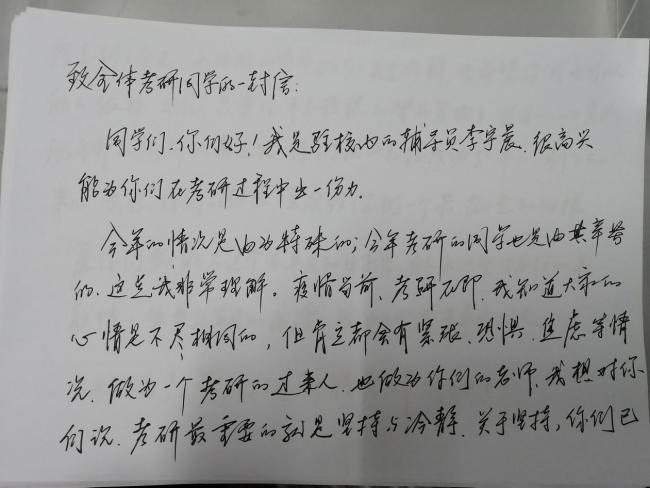 致全体考研同学的一封信:
同学们、你们好!我是驻校内的辅导员李宇晨、很高兴
能为你们在考研过程中出一份力.
今年的情况是尤为特殊的;今年考研的同学也是尤其辛苦
的.这点我非常理解。疫情当前、考研在即.我知道大家的
心情是不尽相同的,但肯定都会有紧张、恐惧、焦虑等情
况.做为一个考研的过来人.也做为你们的老师.我想对你
们说.考研最重要的就是坚持与冷静.关于坚持,你们已